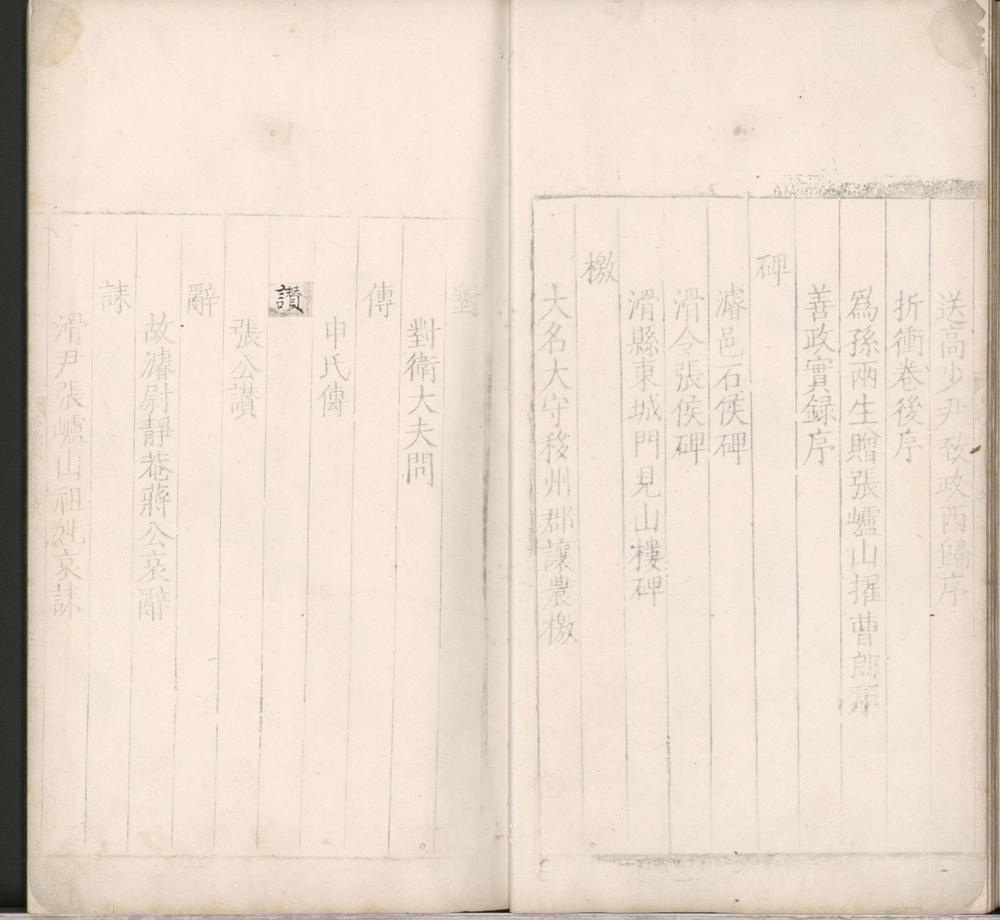 送高少尹致政西歸序
折衝卷後序
爲孫兩生贈張嶁山擢曹郎序
善政實録序
碑
濬邑石侯碑
滑令張侯碑
滑縣東城門見山樓碑
檄
大名太守移州郡讓農檄
對
對衛大夫問
傳
申氏傳
讚
張公讚
辭
故濬尉靜菴蔣公哀辭
誄
滑尹張嶁山祖妣哀誄